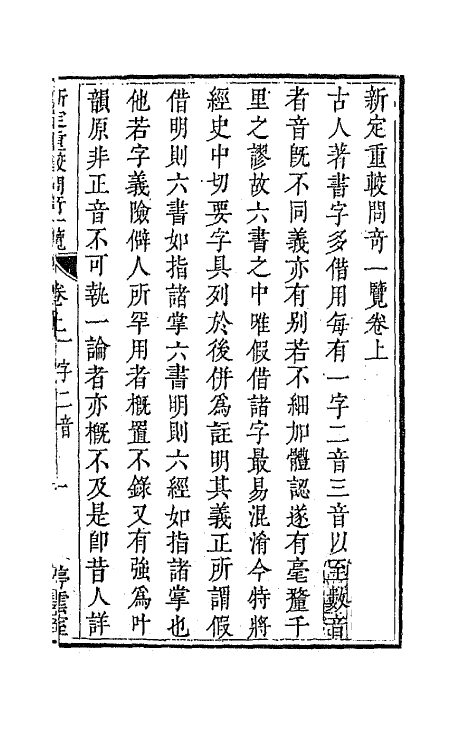 新定重較問竒一覽卷上
古人著書字多借用每有一字二音三音以至數音
者音旣不同義亦有别若不細加體認遂有毫釐千
里之謬故六書之中唯假借諸字最易混淆今特將
經史中切要字具列於後併爲註明其義正所謂假
借明則六書如指諸掌六書明則六經如指諸掌也
他若字義險僻人所罕用者槪置不錄又有強爲叶
韻原非正音不可執一論者亦槪不及是卽昔人詳
新定重較問竒一覽 卷上 一字二音 一